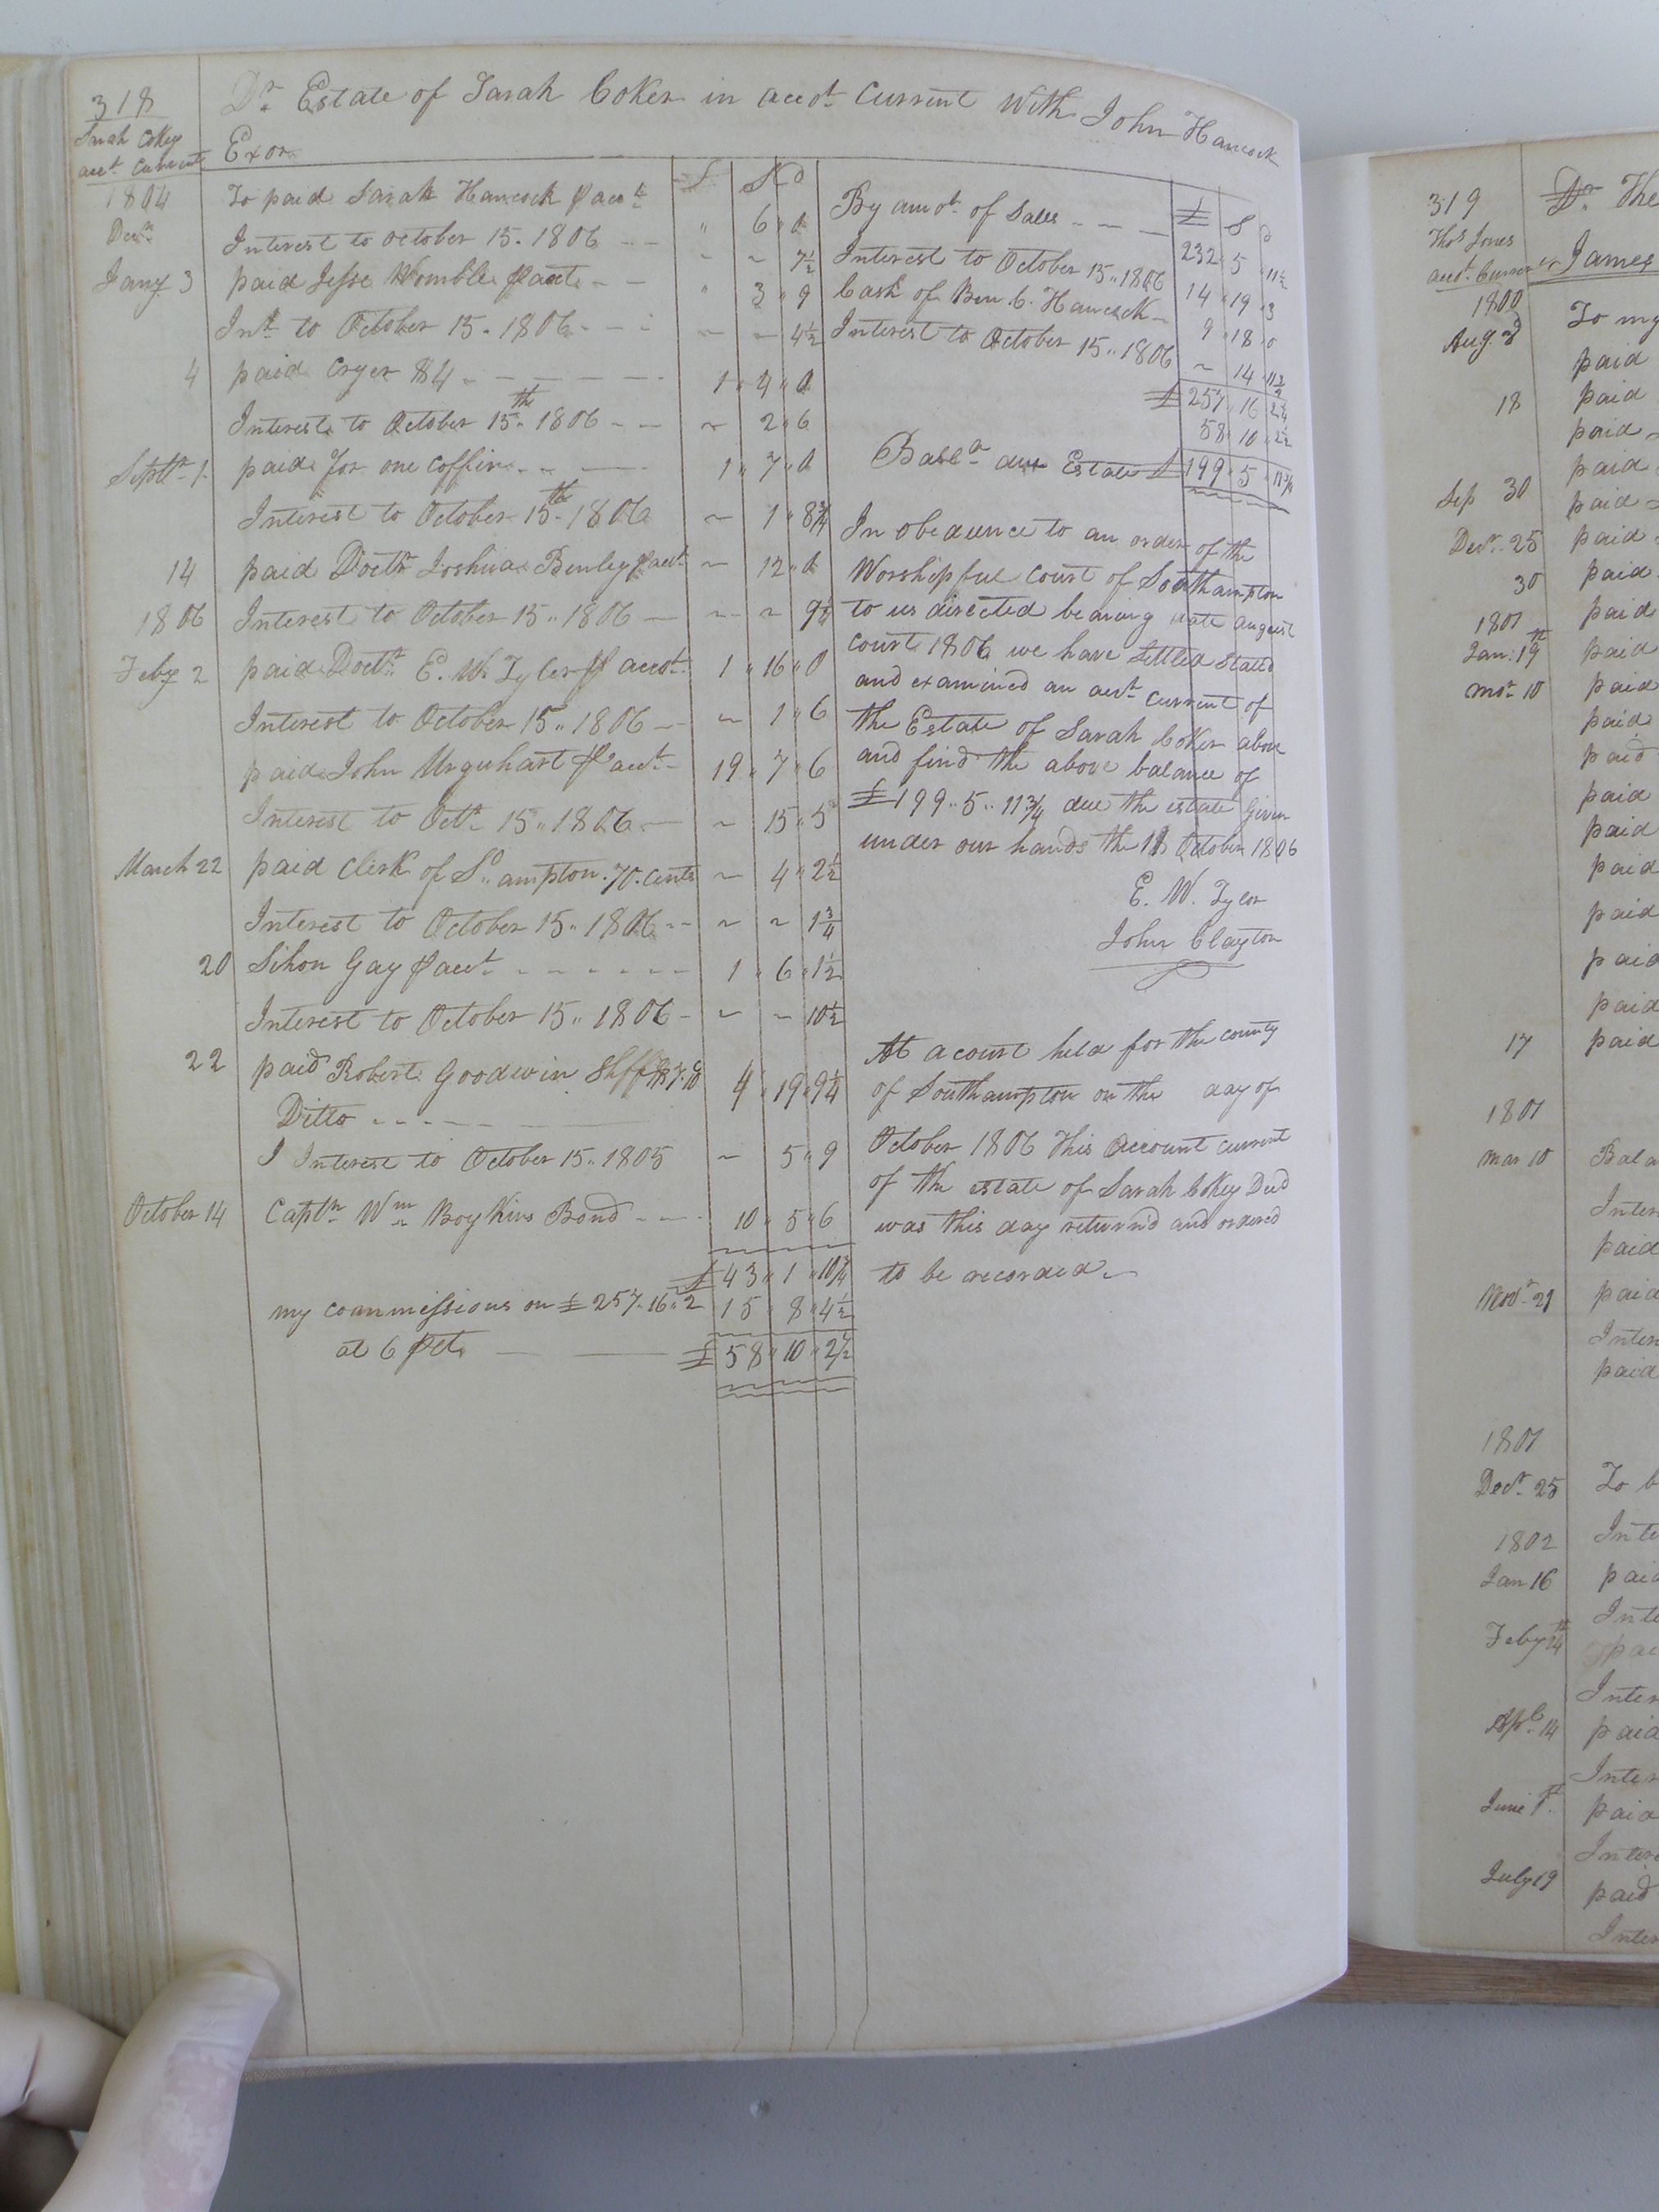 318
Sarah Cokey
acct. Current
Dr. Estate of Sarah Coker in accot. Current With John Hancock
Exor.
£ S d
1804 To paid Sarah Hancock p acct. " 6 " 0
Decr. Interest to october 15. 1806 - - ~ ~ 7½
Jany 3 paid Jesse Womble p acct. - - " 3 " 9
Int. to October 15. 1806 - - - ~ ~ 4½
4 paid Cryer $4 - - - - - 1 " 4 " 0
Interest to October 15th. 1806 - - ~ 2 " 6
Septr. 1. paid for one coffin - - - 1 " 7 " 0
Interest to October 15th. 1806 ~ 1 " 8¾
14 paid Doctr. Joshua Binley p acct. ~ 12 " 0
1806 Interest to October 15 " 1806 - ~ ~ 9¼
Feby 2 paid Doctr. E. W. Tyler p accot. 1 " 16 " 0
Interest to October 15 " 1806 - ~ 1 " 6
paid John Urquhart p acct. - 19 " 7 " 6
Interest to Octr. 15 " 1806 - ~ 15 " 5
March 22 paid Clerk of So. ampton. 70. Cents ~ 4 " 2½
Interest to October 15 " 1806 - - ~ ~ 1¾
20 Sihon Gay p acct. - - - - - - 1 " 6 " 1½
Interest to October 15 " 1806 - ~ ~ 10½
22 paid Robert Goodwin Shff 4 " 19 " 9¼
Ditto - - - - -
I Interest to October 15 " 1805 ~ 5 " 9
October 14 Captn. Wm. Boykins Bond - - - 10 " 5 " 6
£ 43 " 1 " 10¾
my commissions on £ 257 " 16 " 2 15 " 8 " 4½
at 6 pct. - - £ 58 " 10 " 2½
£ S d
By amot. of Sales - - - 232 " 5 " 11½
Interest to October 15 " 1806 14 " 19 " 3
Cash of Ben. C. Hancock - 9 " 18 " 0
Interest to October 15 " 1806 ~ 14
£ 257 " 16 " 2¼
58 " 10 " 2½
Balla. due Estate £ 199 " 5 " 11¾
In obedience to an order of the
Worshipful Court of Southampton
to us directed bearing date august
court 1806 we have settled stated
and examined an acct. current of
the Estate of Sarah Coker above
and find the above balance of
£199 " 5 " 11¾ due the estate Given
under our hands the October 1806
E. W. Tyler
John Clayton
At a court held for the county
of Southampton on the day of
October 1806 This account current
of the estate of Sarah Cokey Decd
was this day returnd and ordered
to be recorded -
319
Thos. Jones
acct. Current
Dr. The
James
1800
Aug. To my
paid
18 paid
paid
paid
Sep 30 paid
Decr. 25 paid
30 paid
1801 paid
Jan. 19 paid
mar. 10 paid
paid
paid
paid
paid
paid
paid
paid
paid
17 paid
1801
mar 10 Bala
Inter
paid
Novr. 21 paid
Inter
paid
1801
Decr. 25 To b
1802 Inte
Jan 16 paid
Inte
Feby 14 pai
Inter
Apl. 14 paid
Inter
June 1st. paid
Inter
July 19 paid
Inter